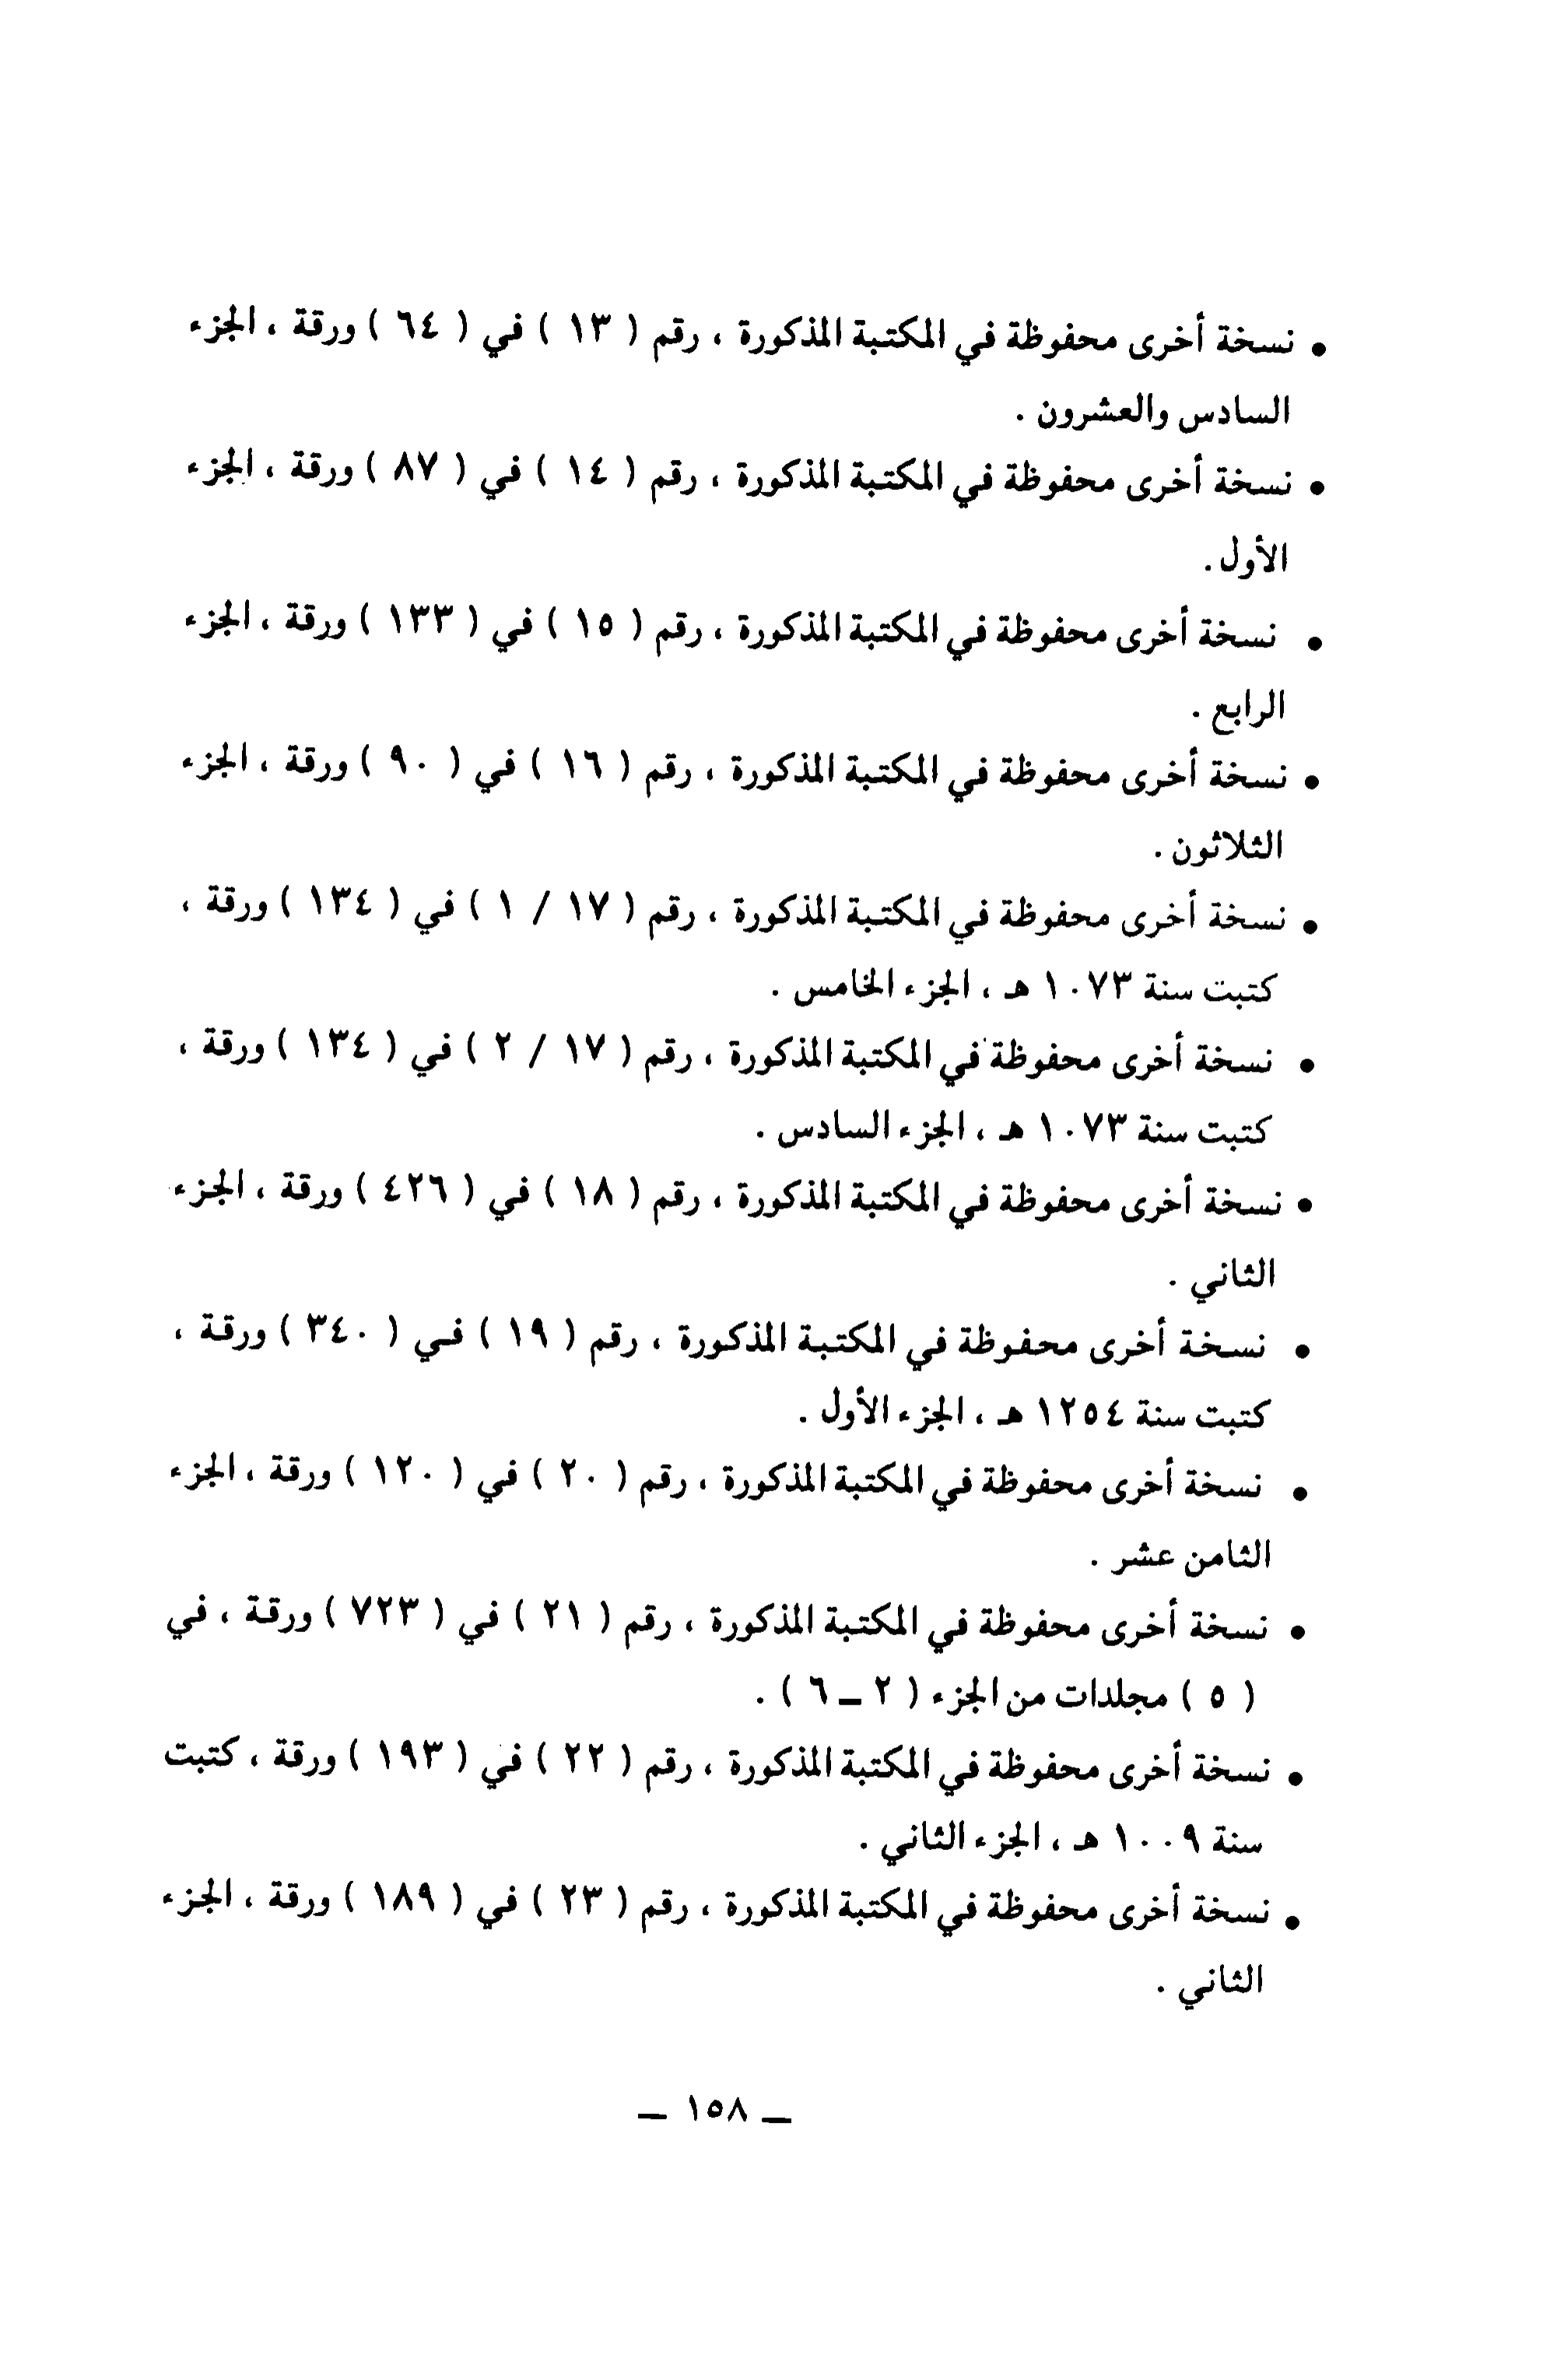 • نسخة أخرى محفوظة في المكتبة المذكورة ، رقم ( ١٣ ) في ( ٦٤ ) ورقة ، الجزء
السادس والعشرون .
• نسخة أخرى محفوظة في المكتبة المذكورة ، رقم ( ١٤ ) في ( ٨٧ ) ورقة ، الجزء
الأول .
• نسخة أخرى محفوظة في المكتبة المذكورة ، رقم ( ١٥ ) في ( ١٣٣ ) ورقة ، الجزء
الرابع .
• نسخة أخرى محفوظة في المكتبة المذكورة ، رقم ( ١٦ ) في ( ٩٠ ) ورقة ، الجزء
الثلاثون .
• نسخة أخرى محفوظة في المكتبة المذكورة ، رقم ( ١٧ / ١ ) في ( ١٣٤ ) ورقة ،
كتبت سنة ١٠٧٣ هـ ، الجزء الخامس .
• نسخة أخرى محفوظة في المكتبة المذكورة ، رقم ( ١٧ / ٢ ) في ( ١٣٤ ) ورقة ،
كتبت سنة ١٠٧٣ هـ ، الجزء السادس .
• نسخة أخرى محفوظة في المكتبة المذكورة ، رقم ( ١٨ ) في ( ٤٢٦ ) ورقة ، الجزء
الثاني .
• نسخة أخرى محفوظة في المكتبة المذكورة ، رقم ( ١٩ ) في ( ٣٤٠ ) ورقة ،
كتبت سنة ١٢٥٤ هـ ، الجزء الأول .
• نسخة أخرى محفوظة في المكتبة المذكورة ، رقم ( ٢٠ ) في ( ١٢٠ ) ورقة ، الجزء
الثامن عشر .
• نسخة أخرى محفوظة في المكتبة المذكورة ، رقم ( ٢١ ) في ( ٧٢٣ ) ورقة ، في
( ٥ ) مجلدات من الجزء ( ٢ ــ ٦ ) .
• نسخة أخرى محفوظة في المكتبة المذكورة ، رقم ( ٢٢ ) في ( ١٩٣ ) ورقة ، كتبت
سنة ١٠٠٩ هـ ، الجزء الثاني .
• نسخة أخرى محفوظة في المكتبة المذكورة ، رقم ( ٢٣ ) في ( ١٨٩ ) ورقة ، الجزء
الثاني .
ــ ١٥٨ ــ